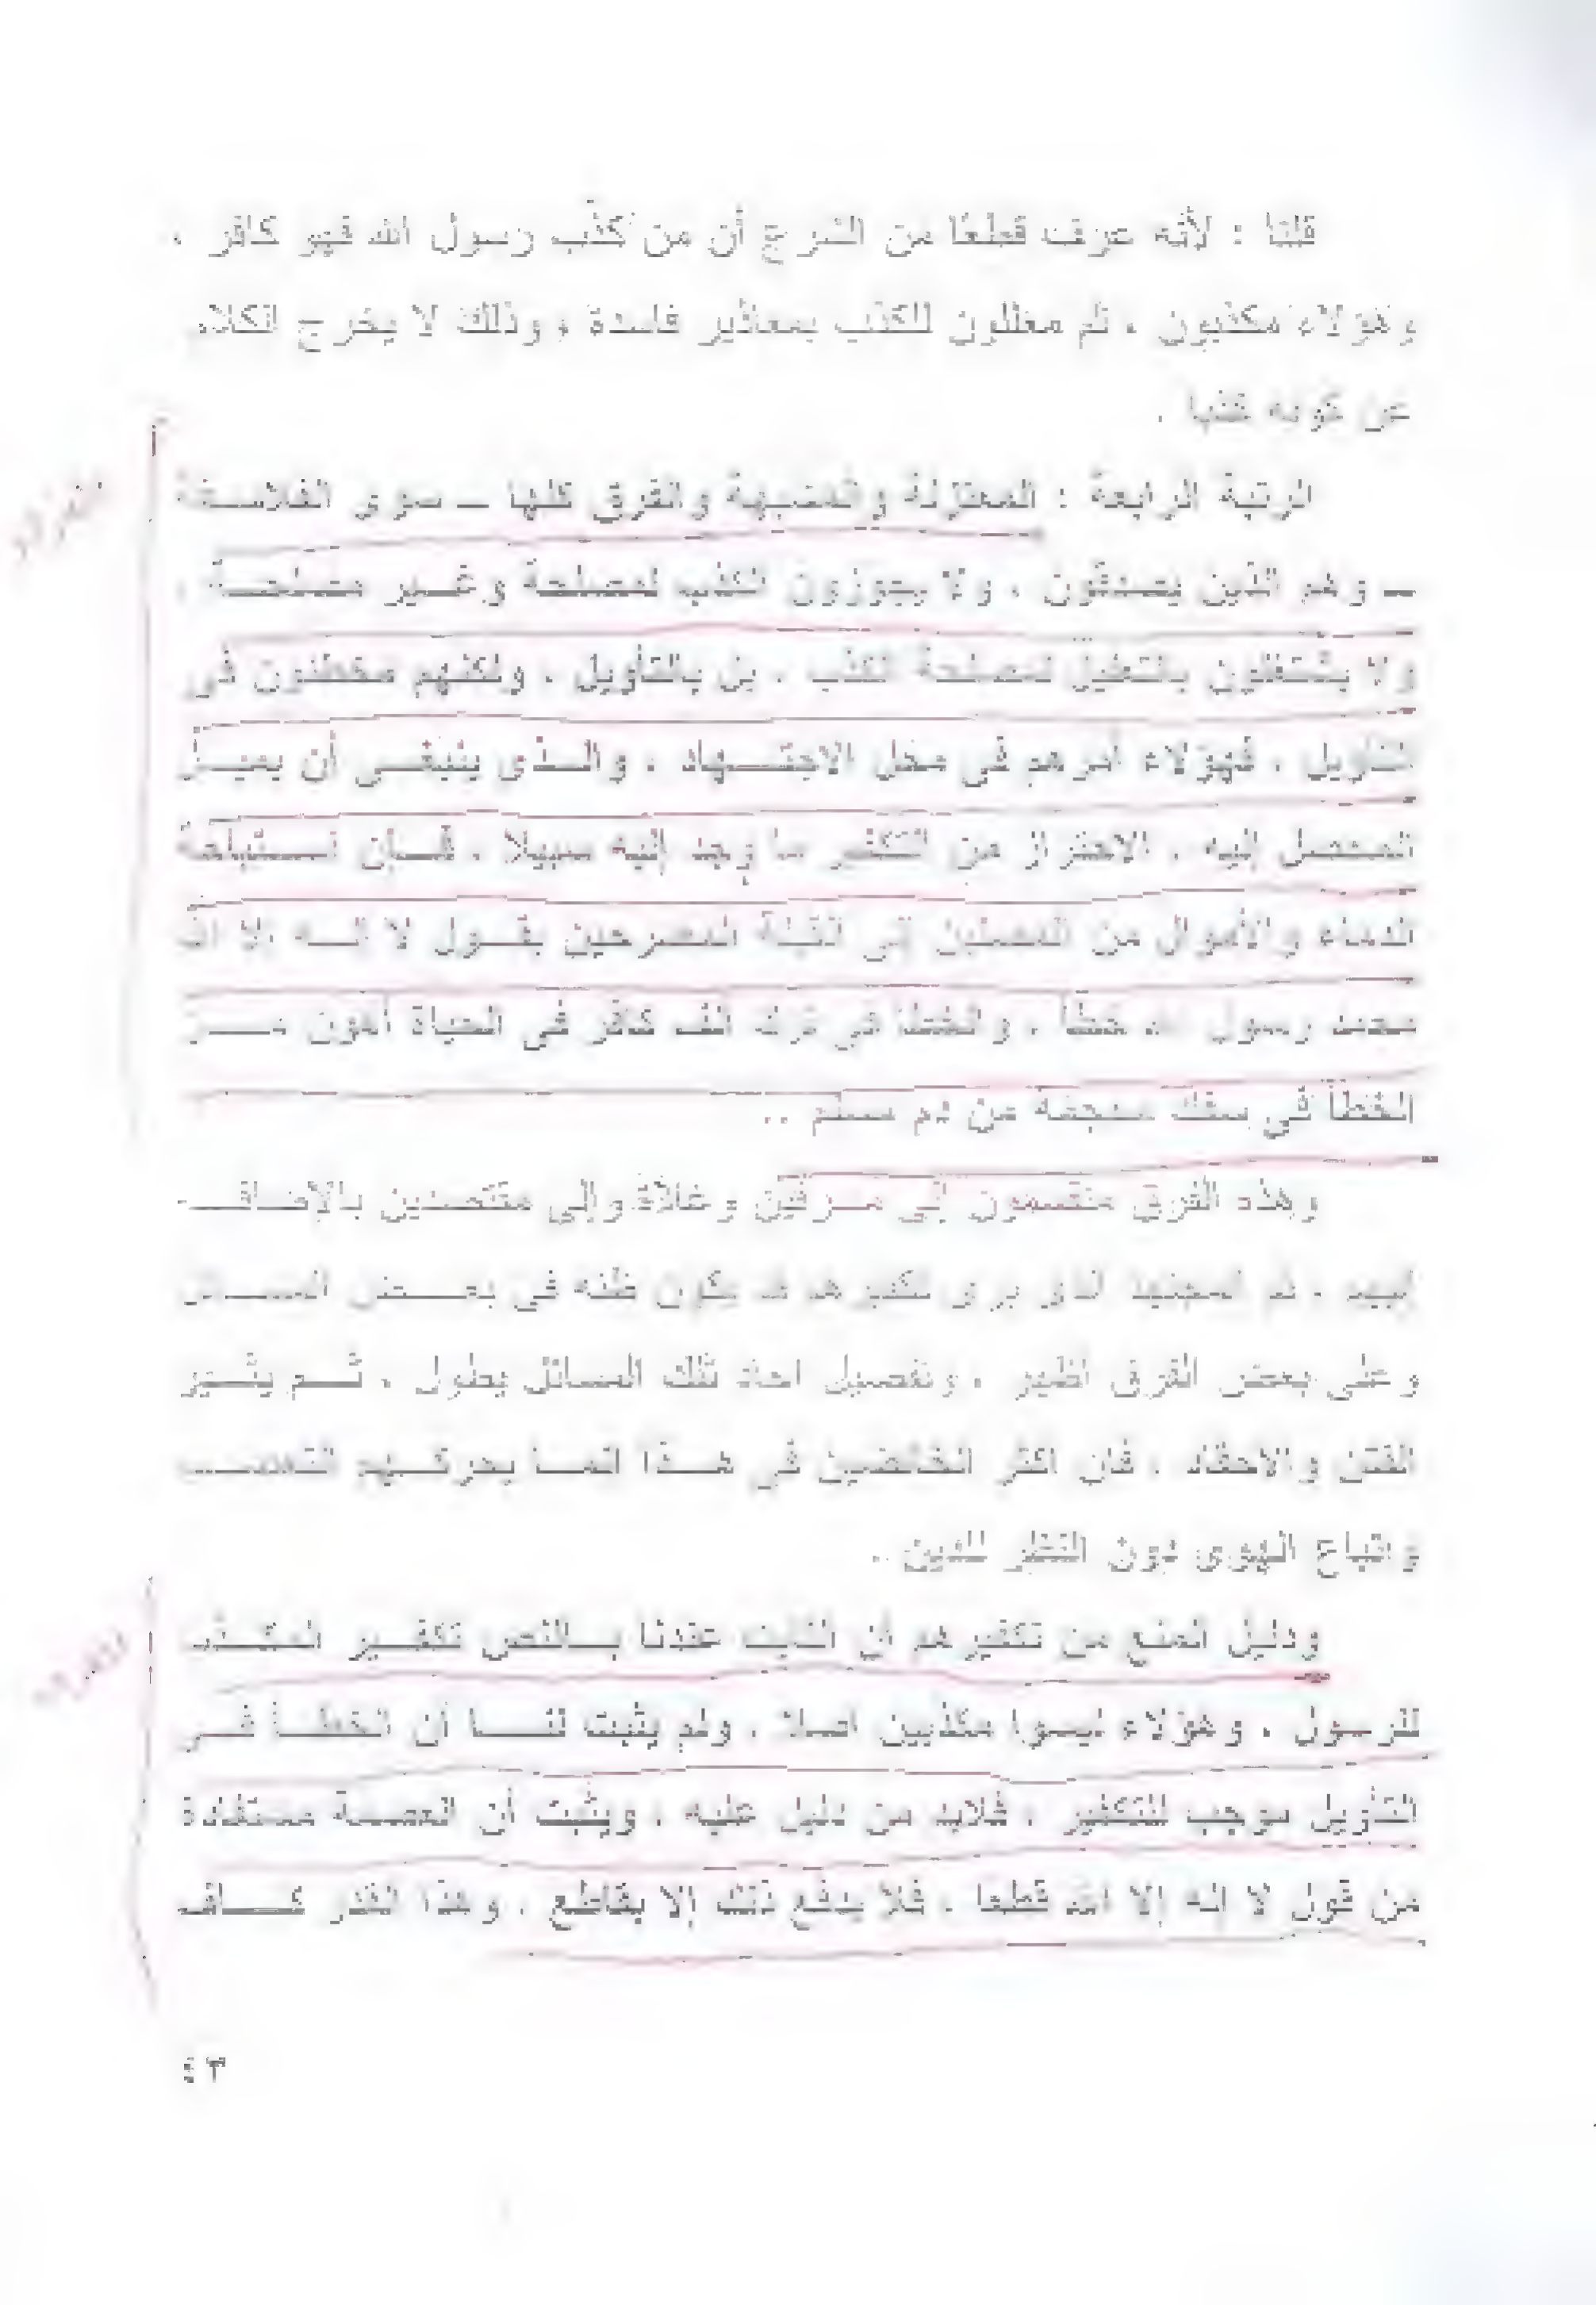 قلنا : لأنه عرف قطعًا من الشرع أن من كذّب رسول الله فهو كافر ،
وهؤلاء مكذبون ، ثم معللون للكذب بمعاذير فاسدة ، وذلك لا يخرج الكلام
عن كونه كذبا .
الرتبة الرابعة : المعتزلة والمشبهة والفرق كلها ــ سوى الفلاسفة
ــ وهم الذين يصدقون ، ولا يجوزون الكذب لمصلحة وغير مصلحة ،
ولا يشتغلون بالتعليل لمصلحة الكذب ، بل بالتأويل ، ولكنهم مخطئون فى
التأويل ، فهؤلاء أمرهم فى محل الاجتهاد ، والذى ينبغى أن يميل
المحصل إليه ، الاحتراز من التكفير ما وجد إليه سبيلا ، فإن استباحة
الدماء والأموال من المصلين إلى القبلة المصرحين بقول لا إله إلا الله
محمد رسول الله خطأ ، والخطأ فى ترك ألف كافر فى الحياة أهون من
الخطأ فى سفك محجمة من دم مسلم ..
وهذه الفرق منقسمون إلى مسرفين وغلاة وإلى مقتصدين بالإضافة
إليهم ، ثم المجتهد الذى يرى تكفيرهم قد يكون ظنه فى بعض المسائل
وعلى بعض الفرق أظهر ، وتفصيل آحاد تلك المسائل يطول ، ثم يثير
الفتن والأحقاد ، فإن أكثر الخائضين فى هذا إنما يحركهم التعصب
واتباع الهوى دون النظر للدين ..
ودليل المنع من تكفيرهم أن الثابت عندنا بالنص تكفير المكذب
للرسول ، وهؤلاء ليسوا مكذبين أصلا ، ولم يثبت لنا أن الخطأ فى
التأويل موجب للتكفير ، فلابد من دليل عليه ، ويثبت أن العصمة مستفادة
من قول لا إله إلا الله قطعا ، فلا يدفع ذلك إلا بقاطع ، وهذا القدر كاف
٤٣